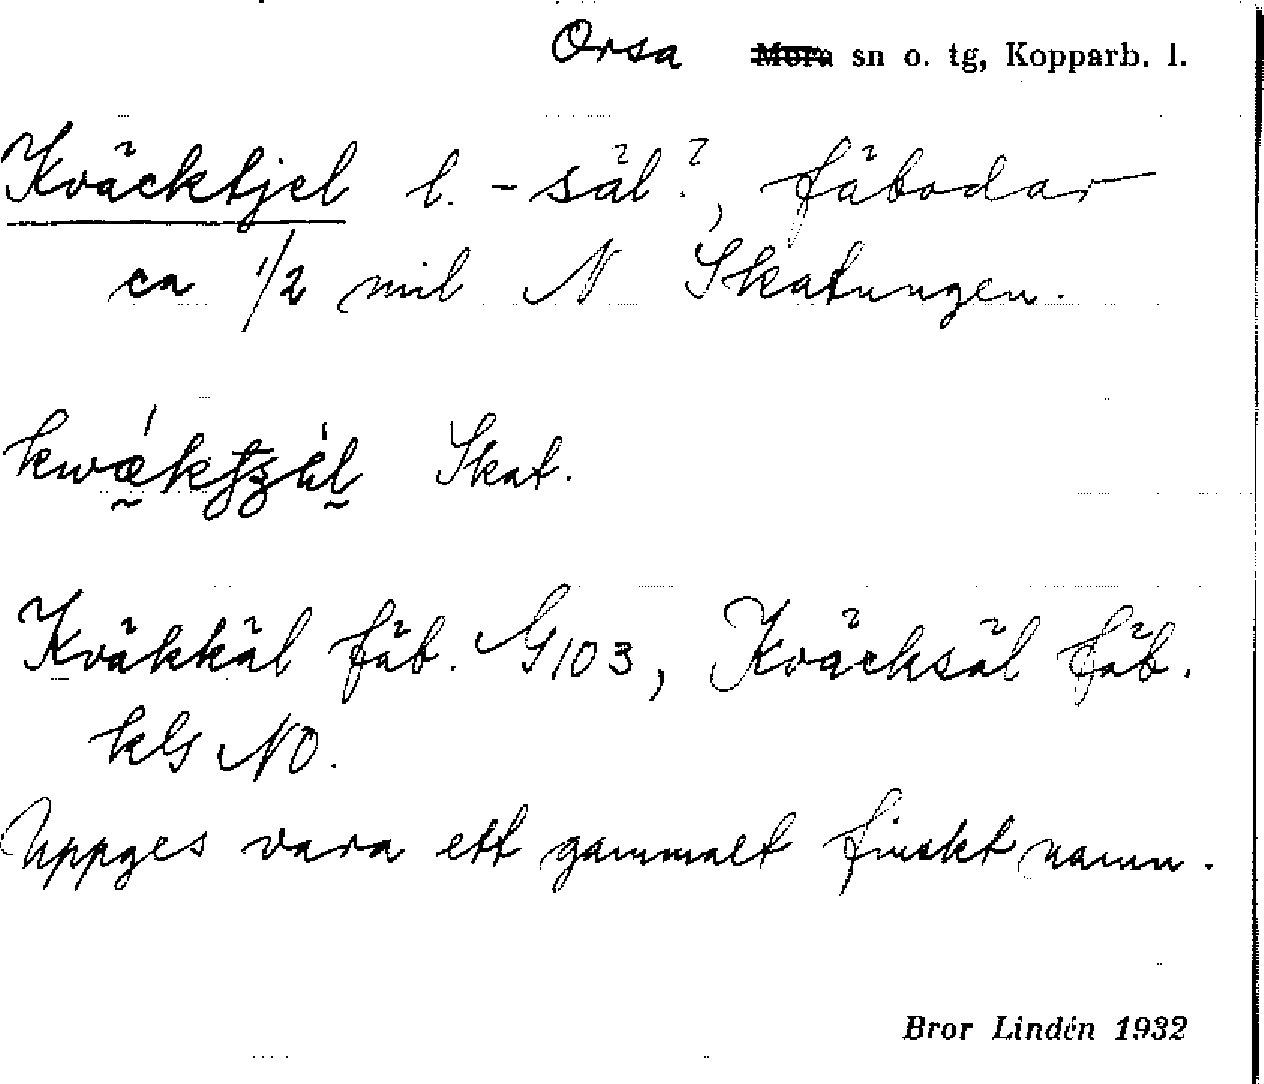 Orsa Mora sn o. tg, Kopparb. l.
Kväcktjel l. -säl?, fäbodar
ca 1/2 mil N Skatungen.
Skat.
Kväkkäl fäb. G103, Kväcksäl fäb.
kls NO.
Uppges vara ett gammalt finskt namn.
Bror Lindén 1932